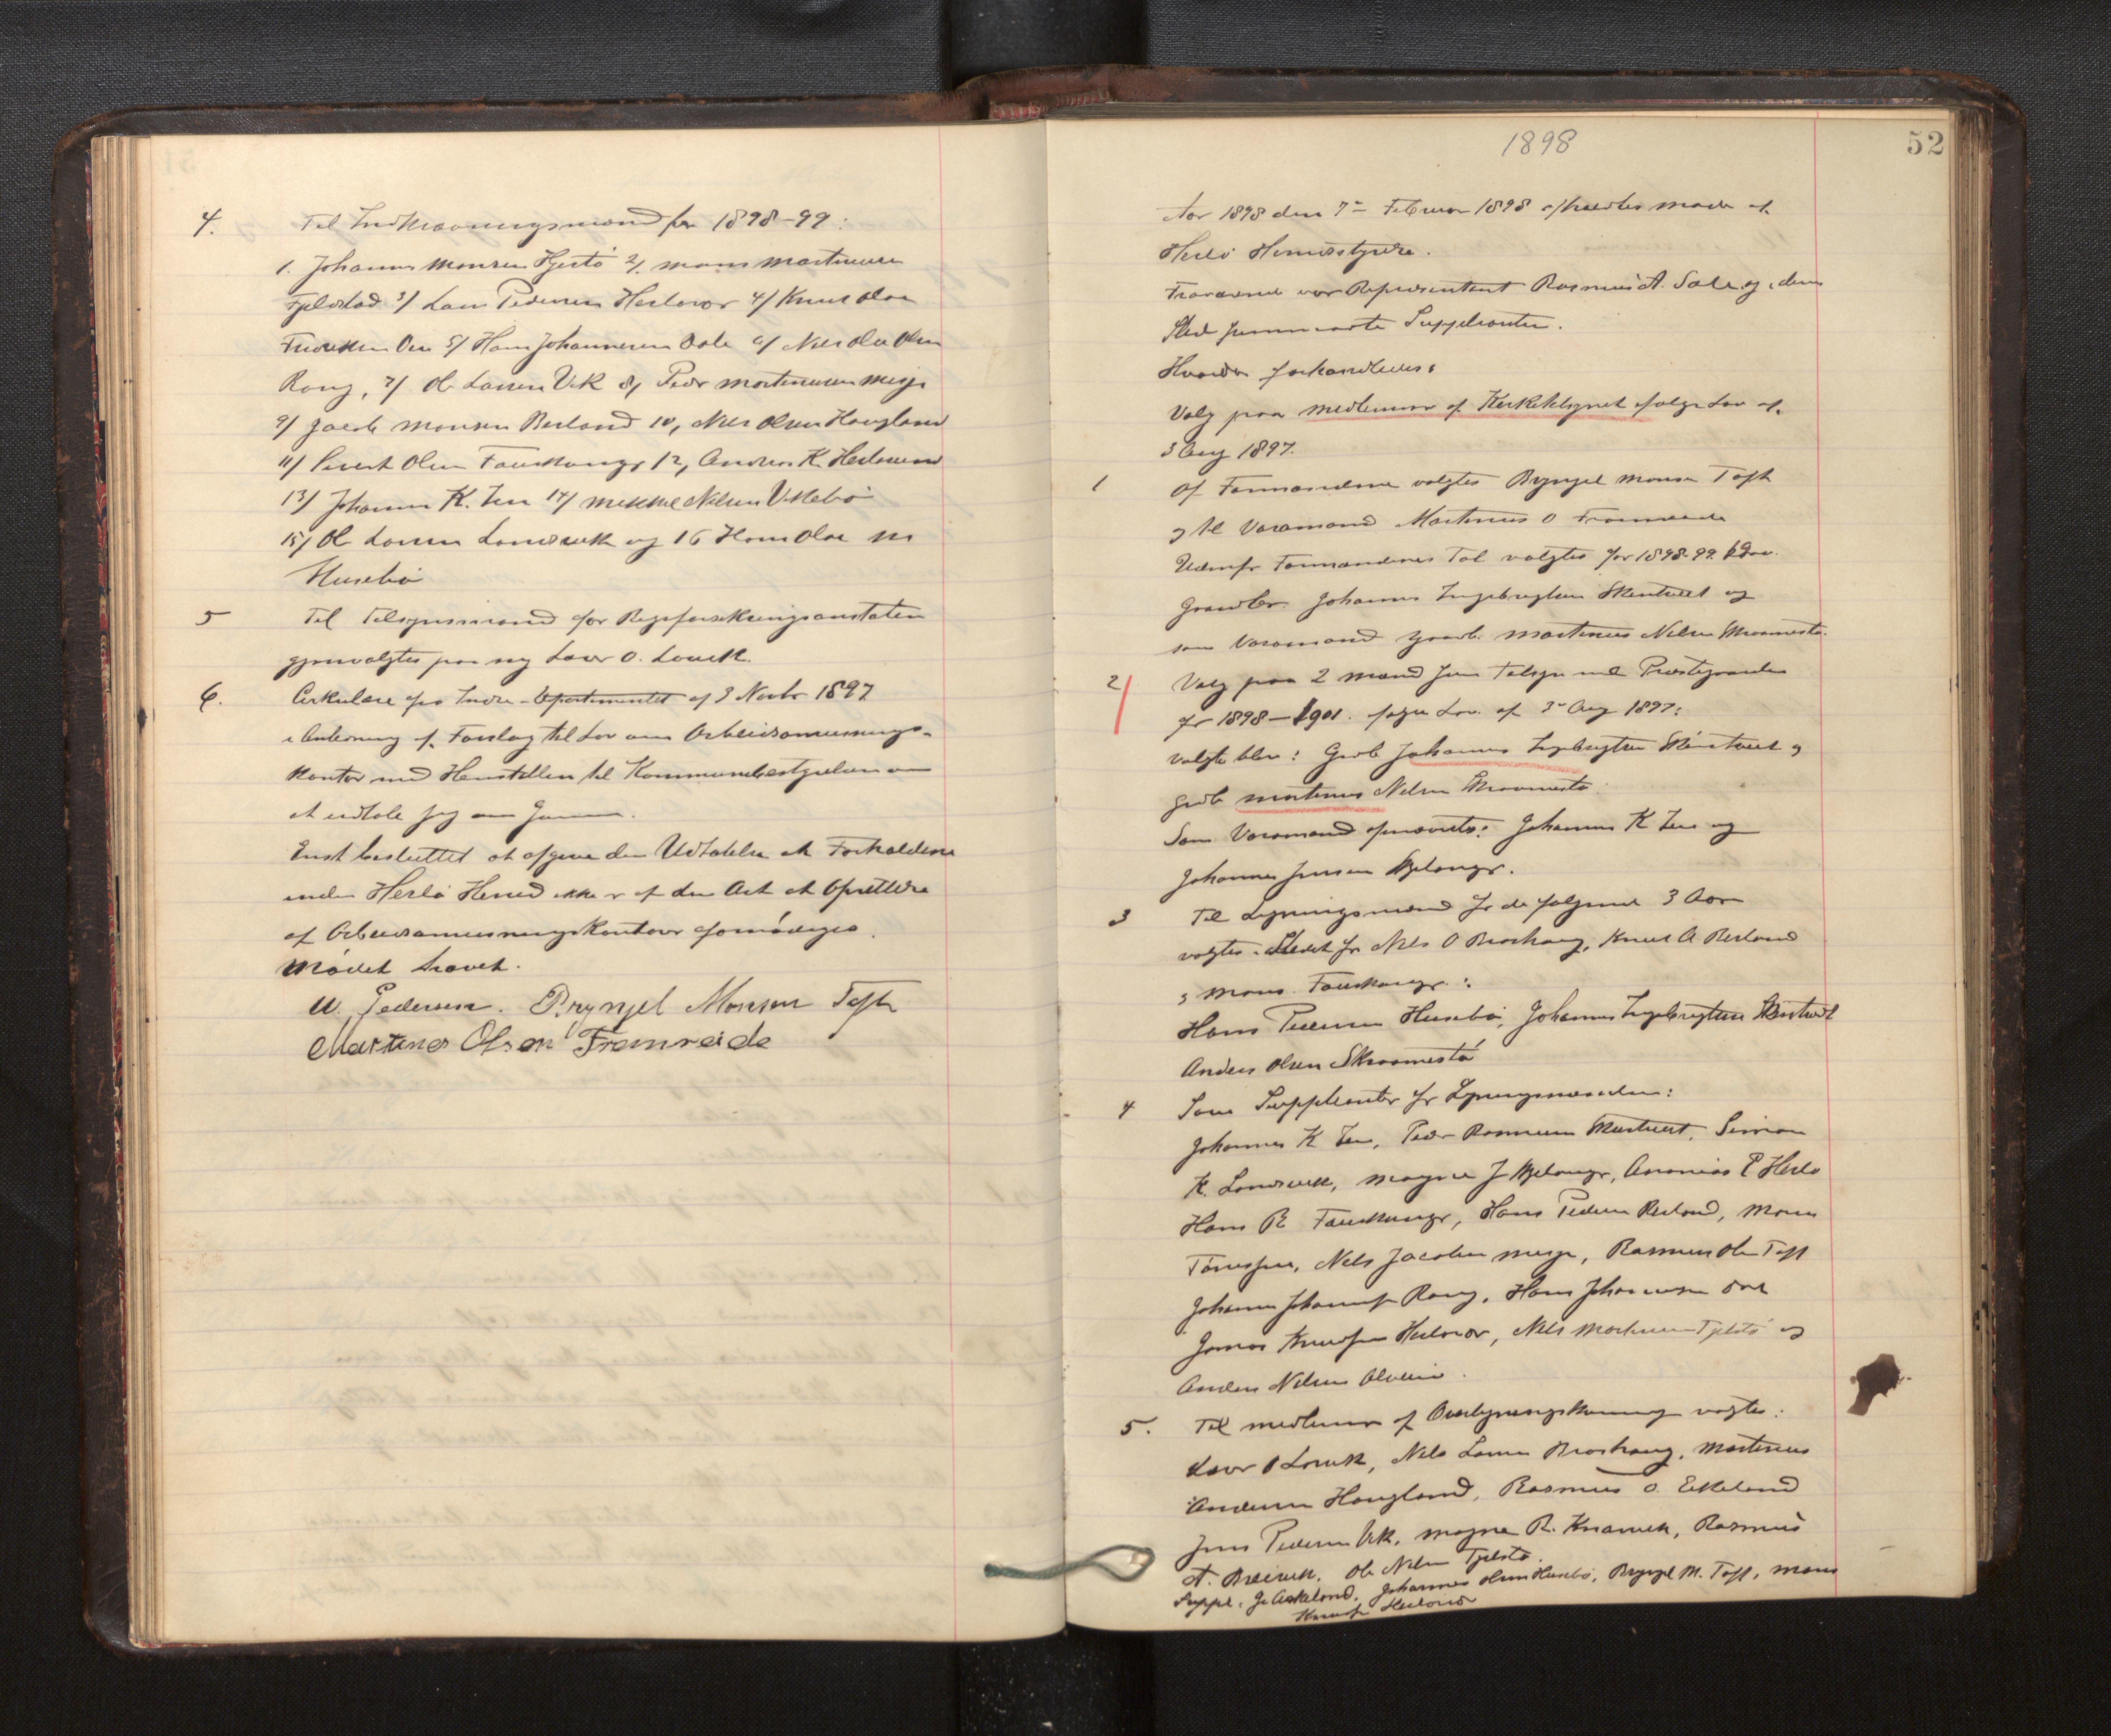 4. Til Indkrævningsmænd for 1898-99:
1. Johannes Monsen Hjertø 2/ Mons Martinusen
Fjeldstad 3/ Lars Pedersen Herlevær 4/ Knut Olai
5/ Hans Johannesen Dale 6/ Nils Ole Olsen
Rong, 7/ Ole Larsen Vik 8/ Peder Martinusen Misje
9/ Jacob Monsen Berland 10, Nils Olsen Haugland
11/ Sivert Olsen Fauskanger 12, Anders K. Herlevær
13/ Johannes K. Ten 14/ Mikkel Nilsen Vettebø
15/ Ole Larsen Landsvik og 16 Hans Olai
Husebø
5 Til Tilsynsmand for Rigsforsikringsanstalten
gjenvalgtes paa ny Laur O. Louvik.
6. Cirkulære fra Indre-Departementet af 3 Novbr 1897
i Anledning af Forslag til Lov om Arbeidsanvisnings-
kontor med Henstillen til Kommunebestyrelsen om
at udtale sig om Samme.
Enst besluttet at afgive den Udtalelse at Forholdene
inden Herlø Herred ikke er af den Art at Oprettelse
af Arbeidsanvisningskontor formødiges.
Mødet hævet.
W. Pedersen. Brynjel Monsen Toft
Martines Olsen Fremreide
1898
52
Aar 1898 den 7de Februar 1898 afholdtes møde af
Herlø Herredsstyrelse.
Fraværende var Repræsentant Rasmus A. Sale og i dens
Sted fremmødte Suppleanten.
Hvorda forhandledes:
Valg paa medlemmer af Kirketilsynet ifølge Lov af
3 Aug 1897.
1 Af Formændene valgtes Brynjel Monsen Toft
og til Varamand Martinus O Fremreide
Udenfor Formændenes Tal valgtes for 1898-99
Gaardbr. Johannes Ingebrigtsen Skintveit og
som Varamand Gaardb. Martinus Nilsen Skraamestø.
2 Valg paa 2 Mænd som Tilsyn med Prestegaarden
for 1898-1901. ifølge Lov. af 3de Aug 1897:
Valgte blev: Grdb Johannes Ingebrigtsen Skintveit og
Grdb Martinus Nilsen Skraamestø.
Som Varamænd opnævntes: Johannes K Ten og
Johannes Jensen Kjelanger.
3 Til Ligningsmænd for de følgende 3 Aar
valgtes istedet for Nils O Brathaug, Knut A Berland
og Mons Fauskanger:
Hans Pedersen Husebø, Johannes Ingebrigtsen Skintveit
Anders Olsen Skraamestø
4 Som Suppleanter for Ligningsmændene:
Johannes K Ten, Peder Rasmusen Skintveit, Simon
K. Landsvik, Magne J Kjelanger, Ananias P Herlø
Hans R Fauskanger, Hans Pedersen Berland, Mons
Tønnesen, Nils Jacobsen Misje, Rasmus Olsen Toft
Johannes Johannesen Rong, Hans Johannesen Dale
Jonas Knudsen Herlevær, Nils Martinusen Tjeldstø og
Anders Nilsen Alvøen.
5. Til medlemmer af Overligningskommission valgtes:
Laur O Louvik, Nils Larsen Brathaug, Martinus
Andersen Haugland, Rasmus O. Eikeland
Jens Pedersen Vik, Magne R. Knarvik, Rasmus
A. Breivik, Ole Nilsen Tjeldstø.
Suppl: J. Askeland, Johannes Olsen Husebø, Brynjel M. Toft, Mons
Knudsen Herlevær